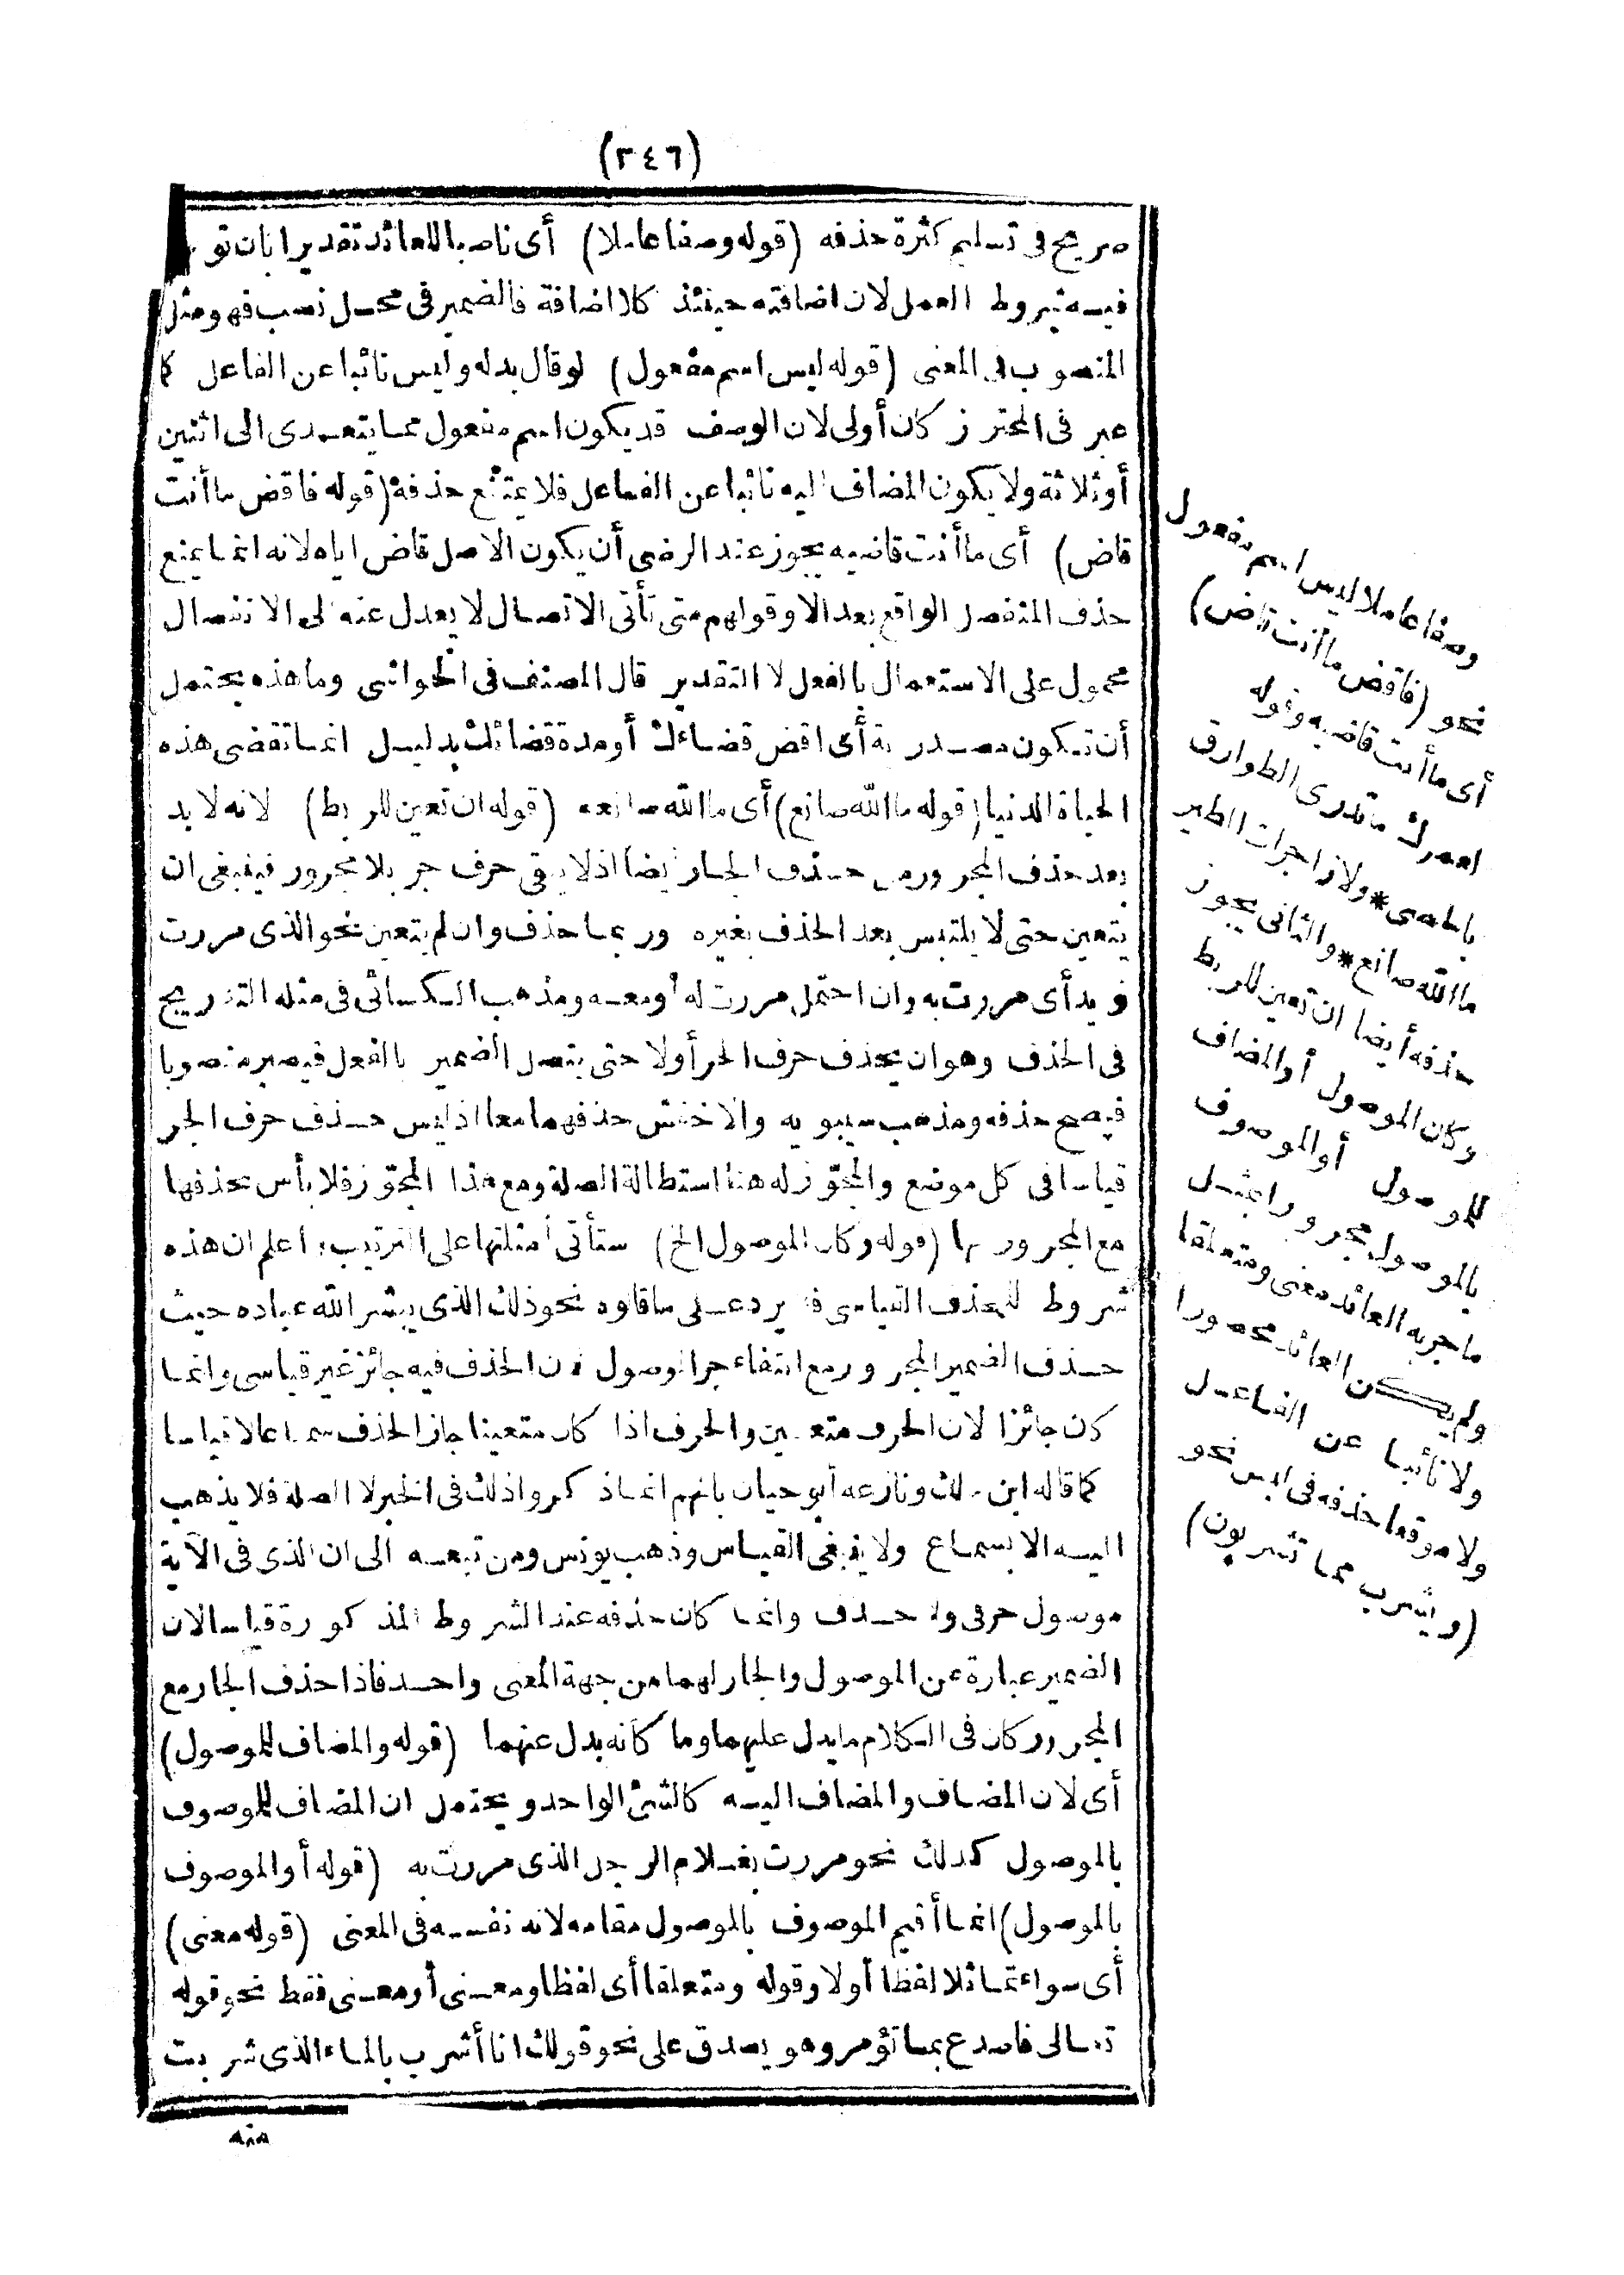 (٣٤٦)
صريح في تسليم كثرة حذفه (قوله وصفا عاملا) أى ناصبا للعائد تقديرا بان تو
فيه شروط العمل لان اضافته حينئذ كلا اضافة فالضمير فى محل نصب فهو مثل
المنصوب فى المعنى (قوله ليس اسم مفعول) لو قال بدله وليس نائبا عن الفاعل كما
عبر فى المحترز كان أولى لان الوصف قد يكون اسم مفعول مما يتعدى الى اثنين
أو ثلاثة ولا يكون المضاف اليه نائبا عن الفاعل فلا يمتنع حذفه (قوله فاقض ما أنت
قاض) أى ما أنت قاضيه يجوز عند الرضى أن يكون الاصل قاض اياه لانه انما يمنع
حذف المنفصل الواقع بعد الا وقولهم متى تأتى الاتصال لا يعدل عنه الى الانفصال
محمول على الاستعمال بالفعل لا التقدير قال المصنف فى الحواشى وما هذه يحتمل
أن تكون مصدرية أى اقض قضاءك أو مدة قضائك بدليل انما تقضى هذه
الحياة الدنيا (قوله ما الله صانع) أى ما الله صانعه (قوله ان تعين للربط) لانه لا بد
بعد حذف المجرور من حذف الجار أيضا اذ لا يبقى حرف جر بلا مجرور فينبغى ان
يتعين حتى لا يلتبس بعد الحذف بغيره وربما حذف وان لم يتعين نحو الذى مررت
زيد أى مررت به وان احتمل مررت له أو معه ومذهب الكسائى فى مثله التدريج
فى الحذف وهو ان يحذف حرف الجر أولا حتى يتصل الضمير بالفعل فيصير منصوبا
فيصح حذفه ومذهب سيبويه والاخفش حذفهما معا اذ ليس حذف حرف الجر
قياسا فى كل موضع والمجوّز له هنا استطالة الصلة ومع هذا المجوّز فلا بأس بحذفها
مع المجرور بها (قوله وكان الموصول الخ) ستأتى أمثلتها على الترتيب واعلم ان هذه
شروط للحذف القياسى فلا يرد على ما قالوه نحو ذلك الذى يبشر الله عباده حيث
حذف الضمير المجرور مع انتفاء جر الموصول لان الحذف فيه جائز غير قياسى وانما
كان جائزا لان الحرف متعين والحرف اذا كان متعينا جاز الحذف سماعا لا قياسا
كما قاله ابن مالك ونازعه أبو حيان بانهم انما ذكروا ذلك فى الخبر لا الصلة فلا يذهب
اليه الا بسماع ولا ينبغى القياس وذهب يونس ومن تبعه الى ان الذى فى الآية
موصول حرفى ولا حذف وانما كان حذفه عند الشروط المذكورة قياسا لان
الضمير عبارة عن الموصول والجار لهما من جهة المعنى واحد فاذا حذف الجار مع
المجرور كان فى الكلام ما يدل عليهما وما كانه بدل عنهما (قوله والمضاف للموصول)
أى لان المضاف والمضاف اليه كالشئ الواحد ويحتمل ان المضاف للموصوف
بالموصول كذلك نحو مررت بغلام الرجل الذى مررت به (قوله أو الموصوف
بالموصول) انما أقيم الموصوف بالموصول مقامه لانه نفسه فى المعنى (قوله معنى)
أى سواء تماثلا لفظا أولا وقوله ومتعلقا أى لفظا ومعنى أو معنى فقط نحو قوله
تعالى فاصدع بما تؤمر وهو يصدق على نحو قولك انا أشرب بالماء الذى شربت
منه
وصفا عاملا ليس اسم مفعول
نحو (فاقض ما أنت قاض)
أى ما أنت قاضيه وقوله
لعمرك ما تدرى الطوارق
بالحصى * ولا زاجرات الطير
ما الله صانع * والثانى يجوز
حذفه أيضا ان تعين للربط
وكان الموصول أو المضاف
للموصول أو الموصوف
بالموصول مجرورا بمثل
ما جر به العائد معنى ومتعلقا
ولم يكن العائد محصورا
ولا نائبا عن الفاعل
ولا موقعا حذفه فى لبس نحو
(ويشرب مما تشربون)